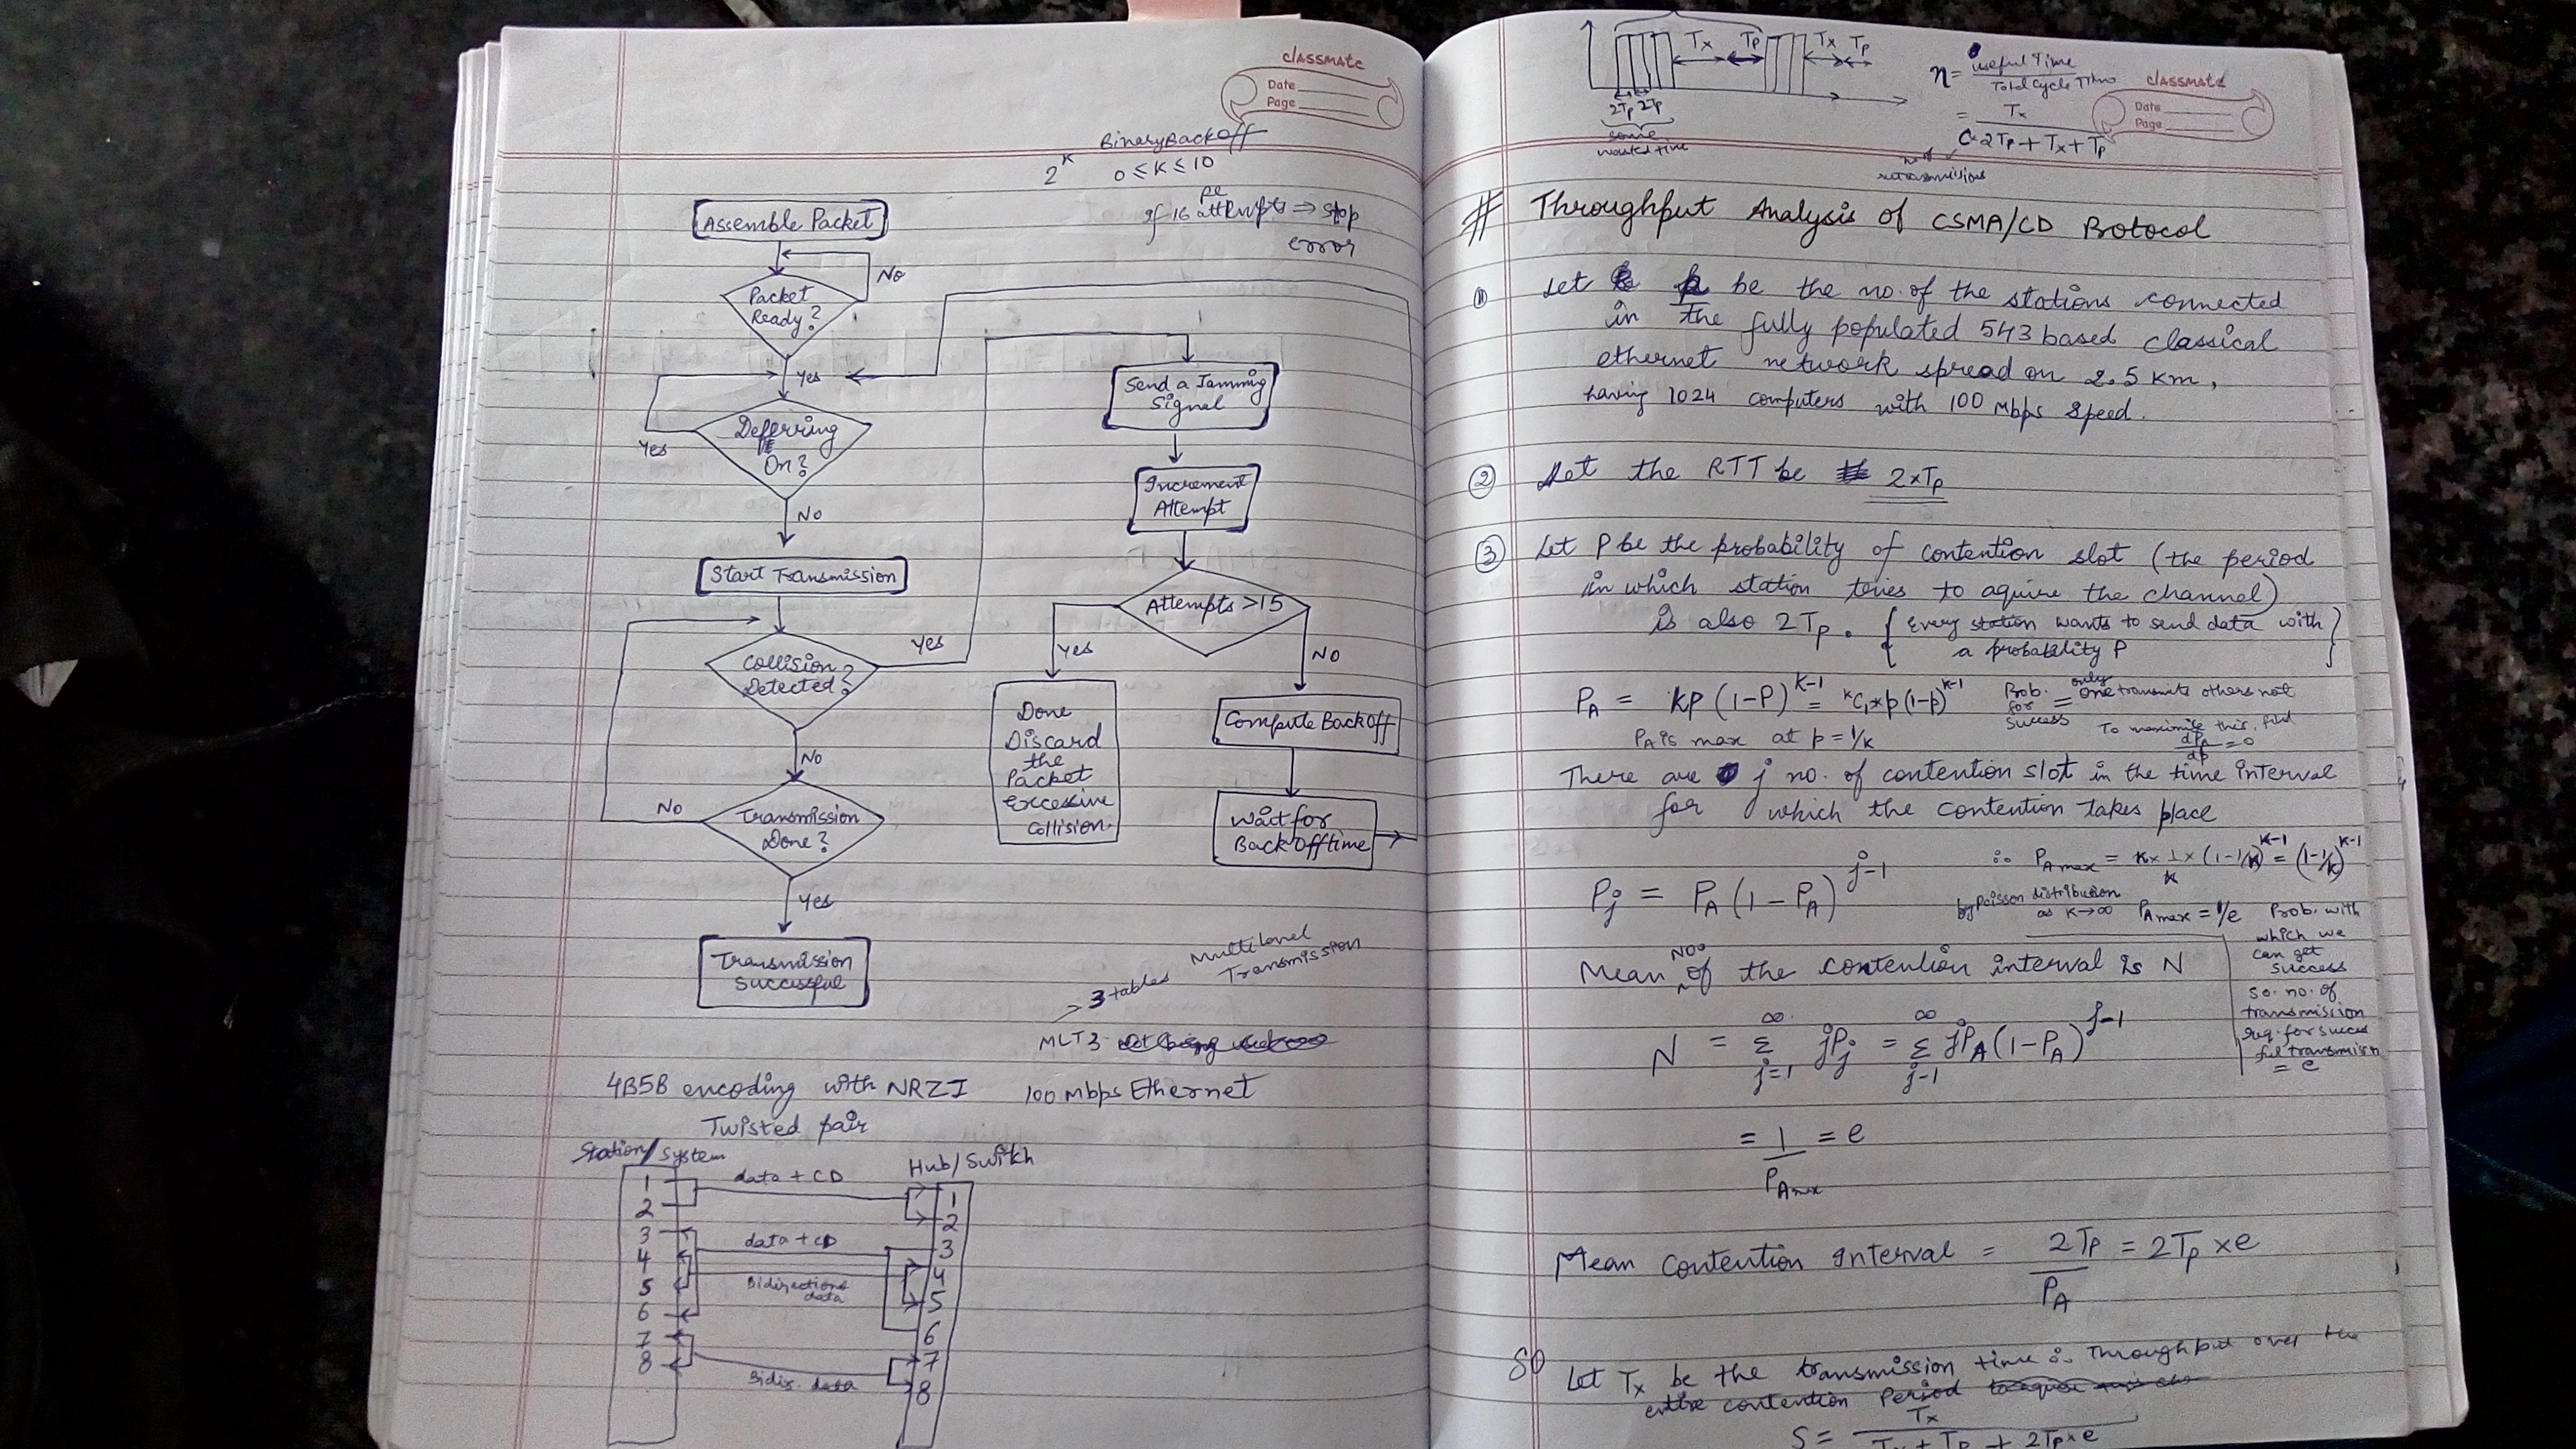 classmate
Date
Page
Binary Backoff
2^K 0 ≤ K ≤ 10
If 16 attempts ⇒ stop
error
Assemble Packet
No
Packet
Ready?
Yes
Yes
Deferring
On?
NO
Start Transmission
Collision
Detected?
Yes
NO
NO
Transmission
Done?
Yes
Transmission
Successful
Send a Jamming
Signal
Increment
Attempt
Attempts >15
Yes
NO
Done
Discard
the
Packet
Excessive
Collision.
Compute Backoff
Wait for
Back Off time
Multilevel
Transmission
3 tables
MLT3
4B5B encoding with NRZI 100 Mbps Ethernet
Twisted pair
Station/System
Hub/Switch
data + CD
data + CD
Bidirectional
data
Bidir. data
1
2
3
4
5
6
7
8
1
2
3
4
5
6
7
8
Tx Tp Tx Tp
2Tp 2Tp
some
wasted time
η = useful Time / Total Cycle Time
= Tx / C·2Tp + Tx + Tp
no. of
retransmissions
classmate
Date
Page
# Throughput Analysis of CSMA/CD Protocol
① Let k be the no. of the stations connected
in the fully populated 543 based classical
ethernet network spread on 2.5 km,
having 1024 computers with 100 Mbps speed.
② Let the RTT be 2×Tp
③ Let P be the probability of contention slot (the period
in which station tries to aquire the channel)
is also 2Tp. { Every station wants to send data with
a probability P }
P_A = kp (1-P)^K-1 = ^kC₁*p (1-p)^K-1 Prob. for success = only one transmits others not
P_A is max at p = 1/K To maximize this, find dP_A/dp = 0
There are j no. of contention slot in the time interval
for which the contention takes place
∴ P_A max = K × 1/K × (1-1/K)^K-1 = (1-1/K)^K-1
P_j = P_A (1 - P_A)^j-1
by poisson distribution
as K→∞ P_A max = 1/e
Prob. with
which we
can get
success
so. no. of
transmission
req. for succes
ful transmissn
= e
Mean NOo of the contention interval is N
N = ∞Σj=1 jP_j = ∞Σj-1 jP_A (1-P_A)^j-1
= 1/P_A max = e
Mean Contention Interval = 2Tp/P_A = 2Tp × e
SO Let Tx be the transmission time ∴ Throughput over the
entire contention Period
S = Tx / Tx + Tp + 2Tp×e